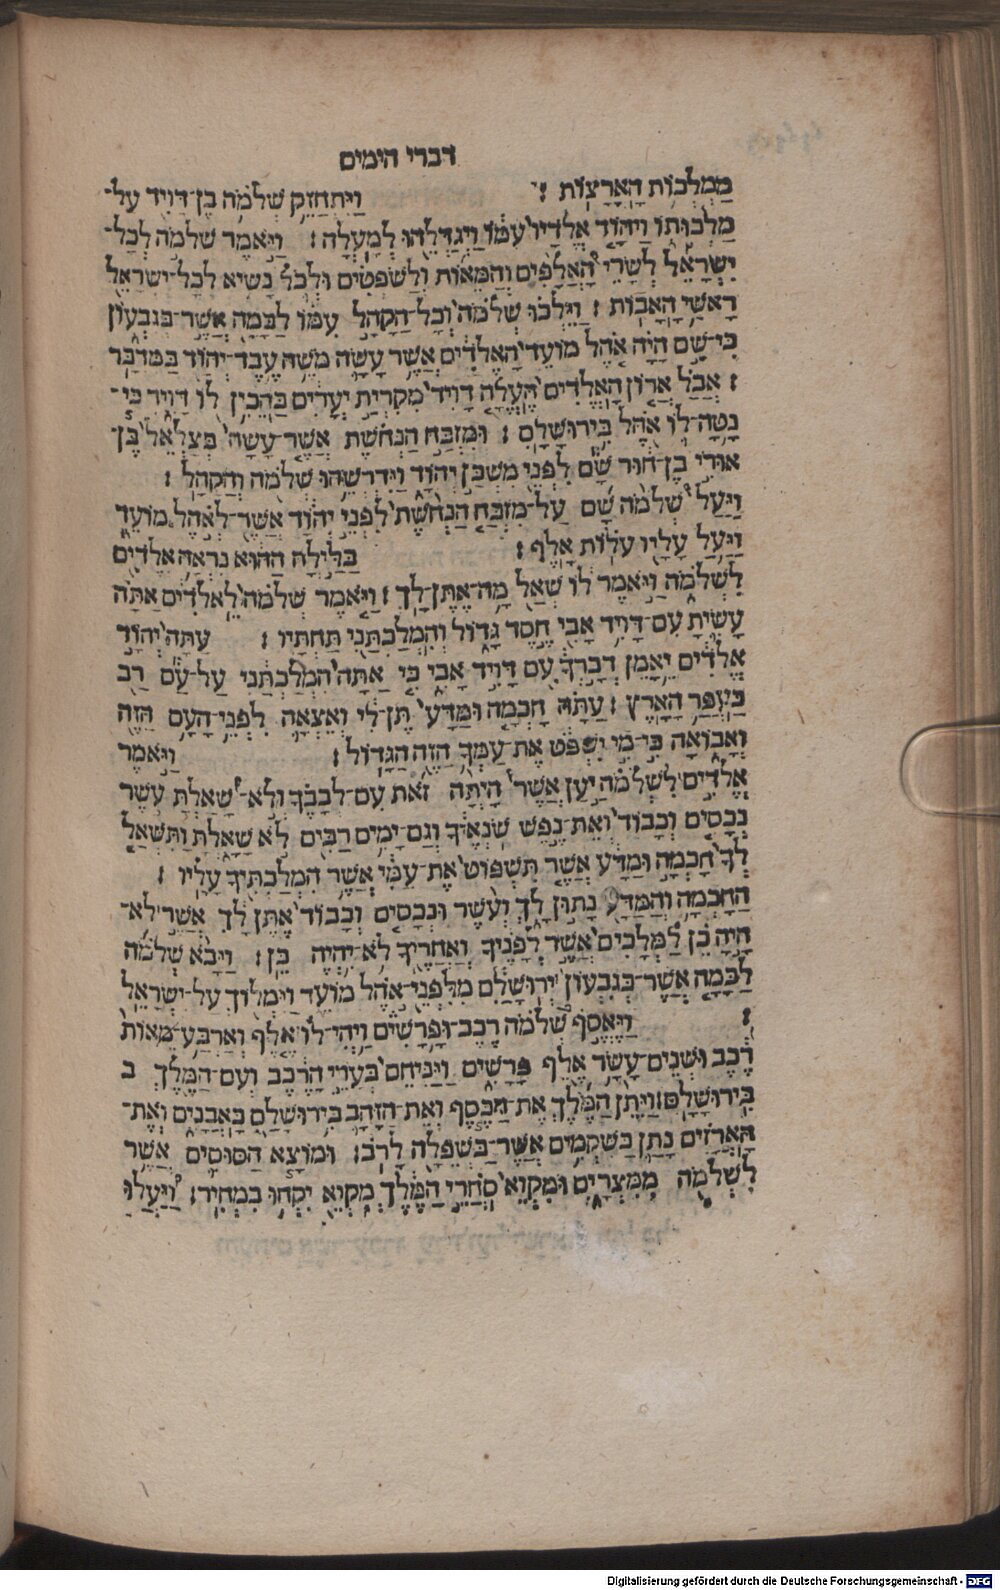 דברי הימים
מַמְלְכ֥וֹת הָאֲרָצֽוֹת ׃ וַיִּתְחַזֵּ֛ק שְׁלֹמֹ֥ה בֶן־דָּוִ֖יד עַל־
מַלְכוּת֑וֹ וַיהוָ֤ד אֱלֹדָיו֙ עִמּ֔וֹ וַֽיְגַדְּלֵ֖הוּ לְמָֽעְלָה׃ וַיֹּ֣אמֶר שְׁלֹמֹ֣ה לְכָל־
יִשְׂרָאֵ֡ל לְשָׂרֵי֩ הָאֲלָפִ֨ים וְהַמֵּא֜וֹת וְלַשֹּֽׁפְטִ֗ים וּלְכֹ֛ל נָשִׂ֥יא לְכָל־יִשְׂרָאֵ֖ל
רָאשֵׁ֥י הָאָבֽוֹת ׃ וַיֵּלְכ֗וּ שְׁלֹמֹה֙ וְכָל־הַקָּהָ֣ל עִמּ֔וֹ לַבָּמָ֖ה אֲשֶׁ֣ר בְּגִבְע֑וֹן
כִּי־שָׁ֣ם הָיָ֗ה אֹ֤הֶל מוֹעֵד֙ הָֽאֱלֹדִ֔ים אֲשֶׁ֥ר עָשָׂ֛ה מֹשֶׁ֥ה עֶֽבֶד־יְהוָ֖ד בַּמִּדְבָּֽר
׃ אֲבָ֗ל אֲר֤וֹן הָאֱלֹדִים֙ הֶעֱלָ֤ה דָוִיד֙ מִקִּרְיַ֣ת יְעָרִ֔ים בַּֽהֵכִ֥ין ל֖וֹ דָּוִ֑יד כִּ֧י־
נָֽטָה־ל֛וֹ אֹ֖הֶל בִּירוּשָׁלָֽםִ ׃ וּמִזְבַּ֣ח הַנְּחֹ֗שֶׁת אֲשֶׁ֤ר עָשָׂה֙ בְּצַלְאֵל֙ בֶּן־
אוּרִ֣י בֶן־ח֔וּר שָׁ֕ם לִפְנֵ֖י מִשְׁכַּ֣ן יְהוָ֑ד וַיִּדְרְשֵׁ֥הוּ שְׁלֹמֹ֖ה וְהַקָּהָֽל ׃
וַיַּעַל֩ שְׁלֹמֹ֨ה שָׁ֜ם עַל־מִזְבַּ֤ח הַנְּחֹ֙שֶׁת֙ לִפְנֵ֣י יְהוָ֔ד אֲשֶׁ֖ר לְאֹ֣הֶל מוֹעֵ֑ד
וַיַּ֧עַל עָלָ֛יו עֹל֖וֹת אָֽלֶף ׃ בַּלַּ֣יְלָה הַה֔וּא נִרְאָ֥ה אֱלֹדִ֖ים
לִשְׁלֹמֹ֑ה וַיֹּ֣אמֶר ל֔וֹ שְׁאַ֖ל מָ֥ה אֶתֶּן־לָֽךְ ׃ וַיֹּ֤אמֶר שְׁלֹמֹה֙ לֵֽאלֹדִ֔ים אַתָּ֗ה
עָשִׂ֛יתָ עִם־דָּוִ֥יד אָבִ֖י חֶ֣סֶד גָּד֑וֹל וְהִמְלַכְתַּ֖נִי תַּחְתָּֽיו ׃ עַתָּה֙ יְהוָ֣ד
אֱלֹדִ֔ים יֵֽאָמֵן֙ דְּבָ֣רְךָ֔ עִ֖ם דָּוִ֣יד אָבִ֑י כִּ֤י אַתָּה֙ הִמְלַכְתַּ֔נִי עַל־עַ֕ם רַ֖ב
כַּעֲפַ֥ר הָאָֽרֶץ ׃ עַתָּ֗ה חָכְמָ֤ה וּמַדָּע֙ תֶּן־לִ֔י וְאֵֽצְאָ֛ה לִפְנֵ֥י הָֽעָם־ הַזֶּ֖ה
וְאָב֑וֹאָה כִּֽי־מִ֣י יִשְׁפֹּ֔ט אֶת־עַמְּךָ֥ הַזֶּ֖ה הַגָּדֽוֹל ׃ וַיֹּ֣אמֶר
אֱלֹדִ֣ים לִ֠שְׁלֹמֹה יַ֣עַן אֲשֶׁר֩ הָיְתָ֨ה זֹ֜את עִם־לְבָבֶ֗ךָ וְלֹֽא־שָׁ֠אַלְתָּ עֹ֣שֶׁר
נְכָסִ֤ים וְכָבוֹד֙ וְאֵת֙ נֶ֣פֶשׁ שֹׂנְאֶ֔יךָ וְגַם־יָמִ֥ים רַבִּ֖ים לֹ֣א שָׁאָ֑לְתָּ וַתִּֽשְׁאַל־
לְךָ֙ חָכְמָ֣ה וּמַדָּ֔ע אֲשֶׁ֤ר תִּשְׁפּוֹט֙ אֶת־עַמִּ֔י אֲשֶׁ֥ר הִמְלַכְתִּ֖יךָ עָלָֽיו ׃
הַֽחָכְמָ֥ה וְהַמַּדָּ֖ע נָת֣וּן לָ֑ךְ וְעֹ֨שֶׁר וּנְכָסִ֤ים וְכָבוֹד֙ אֶתֶּן־לָ֔ךְ אֲשֶׁ֣ר לֹא־
הָ֣יָה כֵ֗ן לַמְּלָכִים֙ אֲשֶׁ֣ר לְפָנֶ֔יךָ וְאַחֲרֶ֖יךָ לֹ֥א יִֽהְיֶה־ כֵּֽן׃ וַיָּבֹ֨א שְׁלֹמֹ֜ה
לַבָּמָ֤ה אֲשֶׁר־בְּגִבְעוֹן֙ יְר֣וּשָׁלִַ֔ם מִלִּפְנֵ֖י אֹ֣הֶל מוֹעֵ֑ד וַיִּמְלֹ֖ךְ עַל־יִשְׂרָאֵֽל
׃ וַיֶּאֱסֹ֣ף שְׁלֹמֹה֮ רֶ֣כֶב וּפָרָשִׁים֒ וַֽיְהִי־ל֗וֹ אֶ֤לֶף וְאַרְבַּע־מֵאוֹת֙
רֶ֔כֶב וּשְׁנֵים־עָשָׂ֥ר אֶ֖לֶף פָּרָשִׁ֑ים וַיַּנִּיחֵם֙ בְּעָרֵ֣י הָרֶ֔כֶב וְעִם־הַמֶּ֖לֶךְ ב
בִּירוּשָׁלָֽםִ׃ וַיִּתֵּ֨ן הַמֶּ֜לֶךְ אֶת־הַכֶּ֧סֶף וְאֶת־הַזָּהָ֛ב בִּירוּשָׁלִַ֖ם כָּאֲבָנִ֑ים וְאֵ֣ת־
הָאֲרָזִ֗ים נָתַ֛ן כַּשִּׁקְמִ֥ים אֲשֶׁר־בַּשְּׁפֵלָ֖ה לָרֹֽב׃ וּמוֹצָ֧א הַסּוּסִ֛ים אֲשֶׁ֥ר
לִשְׁלֹמֹ֖ה מִמִּצְרָ֑יִם וּמִקְוֵ֕א סֹחֲרֵ֣י הַמֶּ֔לֶךְ מִקְוֵ֥א יִקְח֖וּ בִּמְחִֽיר׃ וַֽ֠יַּעֲלוּ
Digitalisierung gefördert durch die Deutsche Forschungsgemeinschaft - DFG